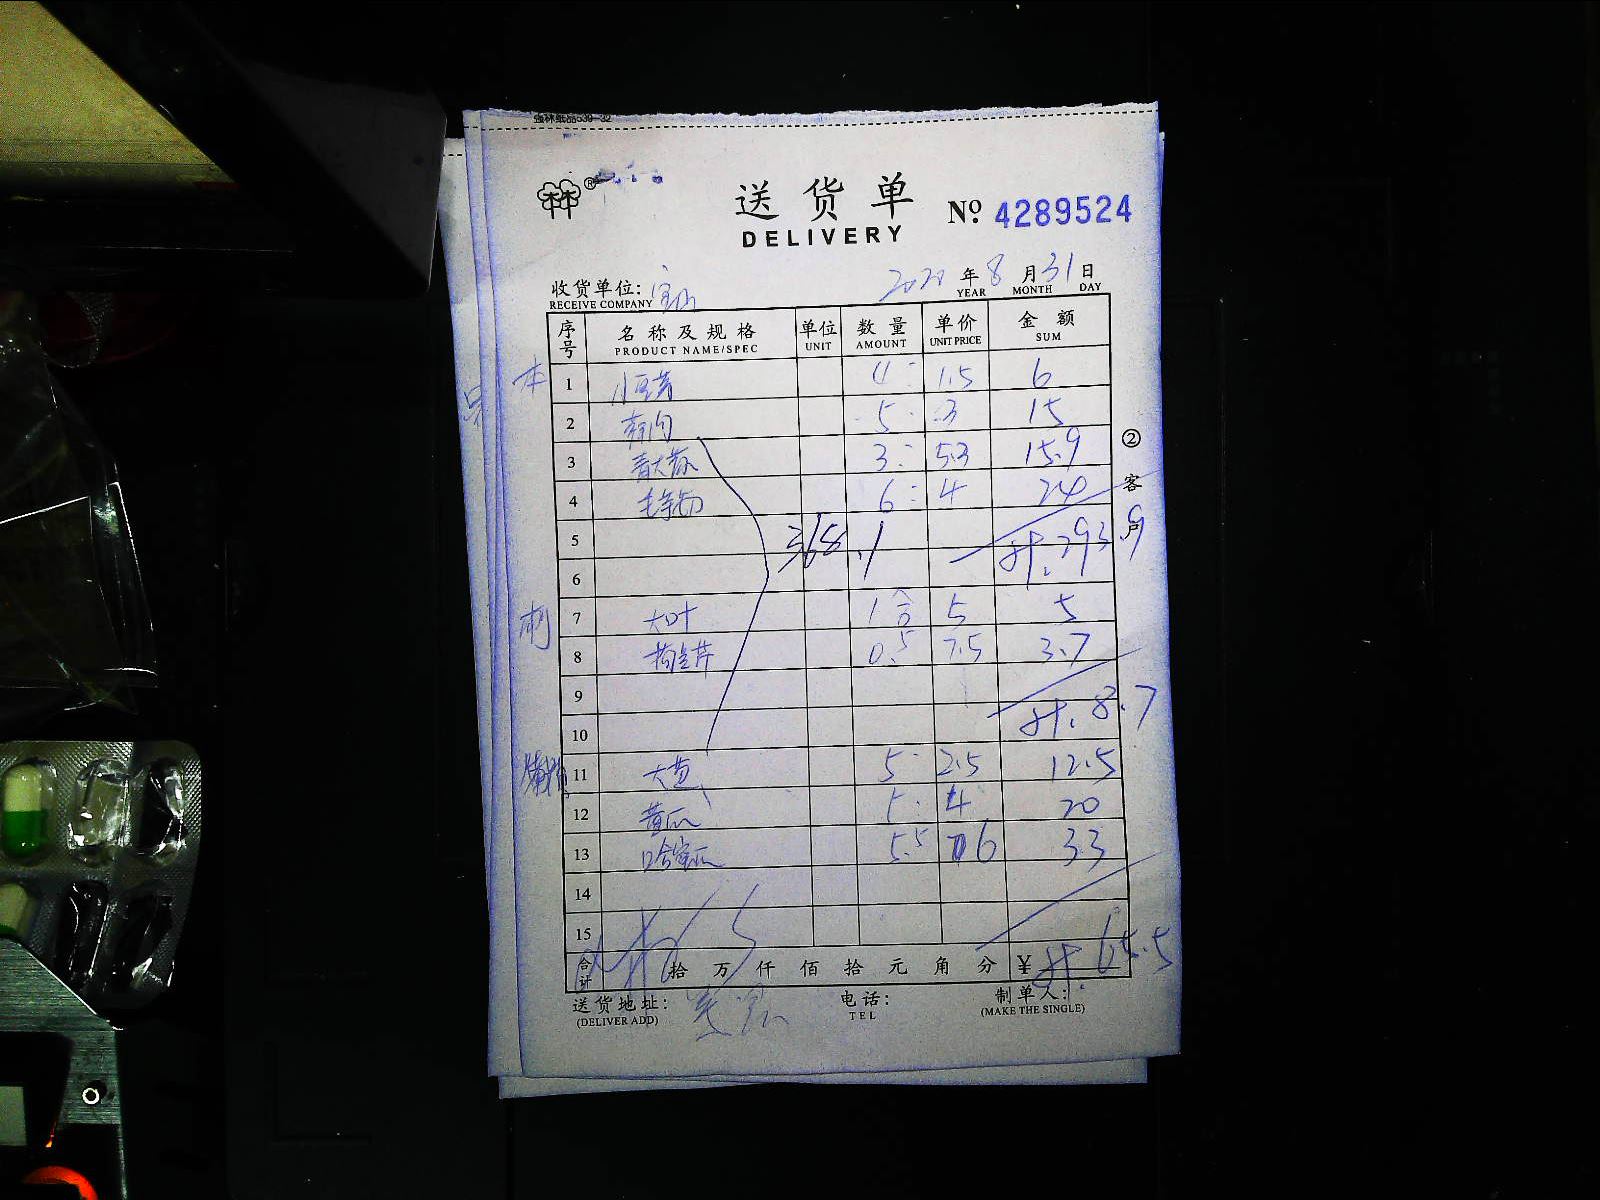 强林纸品539-32
林林®
送货单 № 4289524
DELIVERY
收货单位: 宝山 2020 年 8 月 31 日
RECEIVE COMPANY YEAR MONTH DAY
序号 名称及规格 单位 数量 单价 金额
PRODUCT NAME/SPEC UNIT AMOUNT UNIT PRICE SUM
本 1 小豆芽 4 1.5 6
2 5 3 15
3 3 5.3 15.9
4 6 4 24
5 368.1 计.293.9
6
7 大叶 1合 5 5
8 0.5 7.5 3.7
9
10 计.8.7
11 大 5 2.5 12.5
12 黄瓜 5 4 20
13 哈密瓜 5.5 6 33
14
15
合计 拾 万 仟 佰 拾 元 角 分 ¥ 计.65.5
送货地址: 电话: 制单人:
(DELIVER ADD) TEL (MAKE THE SINGLE)
② 客户